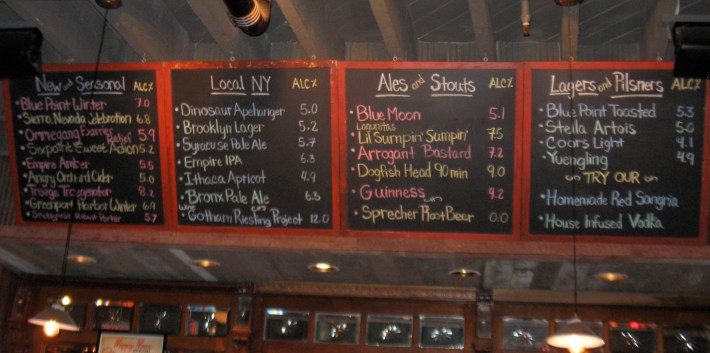 New and Seasonal ALC%
Blue Point Winter 7.0
Sierra Nevada Celebration 6.8
Ommegang Belief 5.9
Sixpoint Sweet Action 5.2
Empire Amber 5.5
Angry Orchard Cider 5.0
Troegs Troegenator 8.2
Greenport Harbor Winter 6.9
Harbor 5.7
Local NY ALC%
Dinosaur Apehanger 5.0
Brooklyn Lager 5.2
Syracuse Pale Ale 5.7
Empire IPA 6.3
Ithaca Apricot 4.9
Bronx Pale Ale 6.3
Gotham Riesling Project 12.0
Ales and Stouts ALC%
Blue Moon 5.1
Lagunitas
Lil Sumpin' Sumpin' 7.5
Arrogant Bastard 7.2
Dogfish Head 90 min 9.0
Guinness 4.2
Sprecher Root Beer 0.0
Lagers and Pilsners ALC%
Blue Point Toasted 5.3
Stella Artois 5.0
Coors Light 4.1
Yuengling 4.9
TRY OUR
Homemade Red Sangria
House Infused Vodka